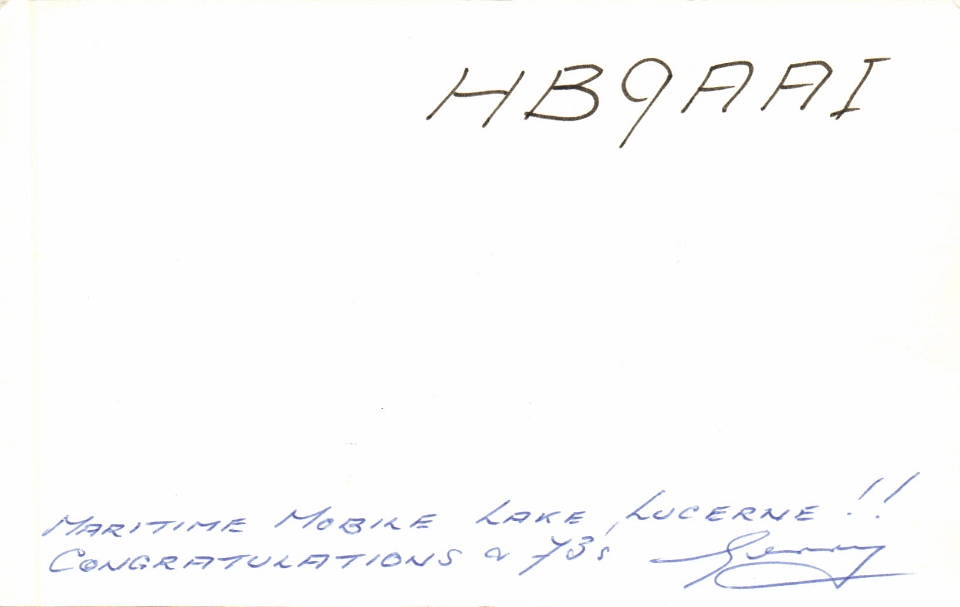 HB9AAI
MARITIME MOBILE LAKE LUCERNE !!
CONGRATULATIONS & 73's Gerry